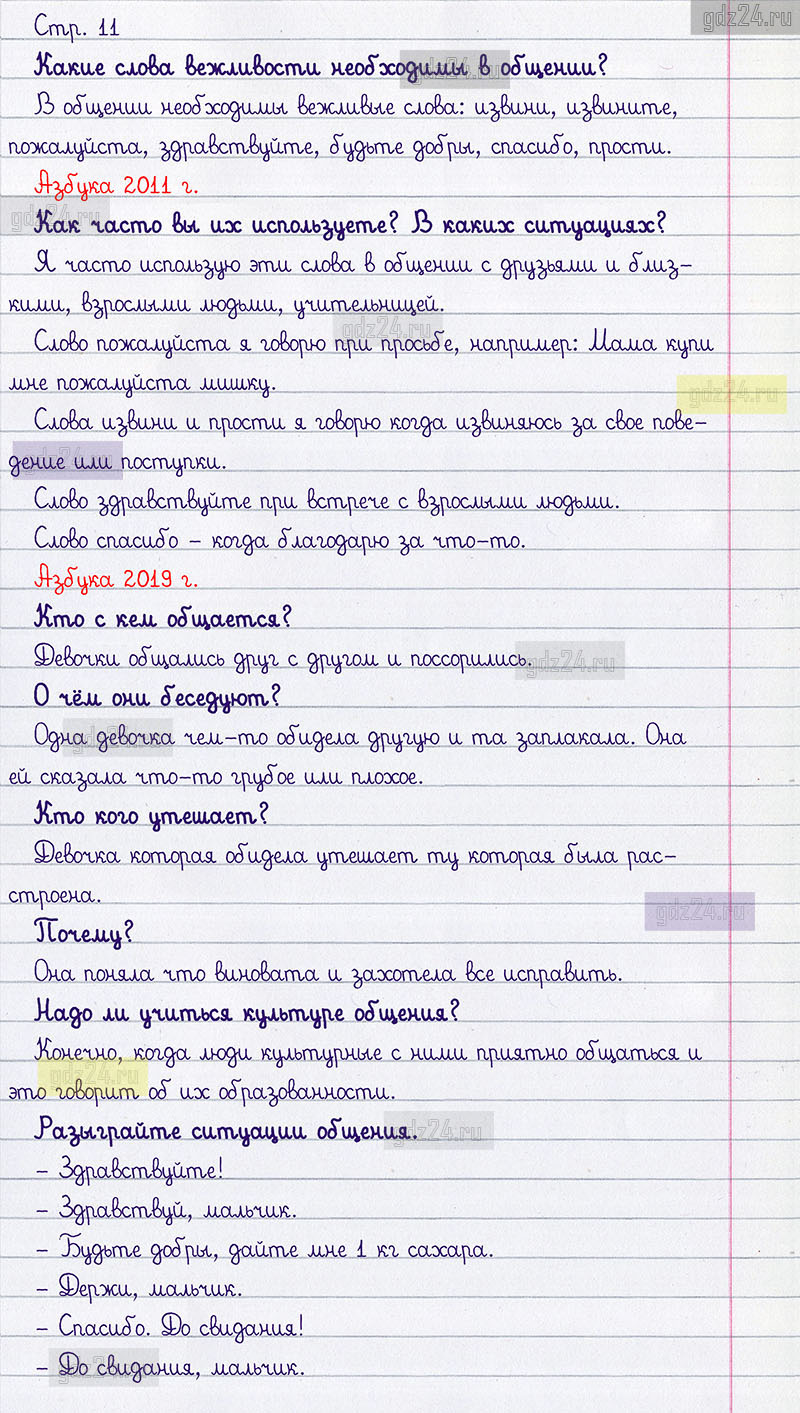 gdz24.ru
Стр. 11
Какие слова вежливости необходимы в общении?
gdz24.ru
В общении необходимы вежливые слова: извини, извините,
пожалуйста, здравствуйте, будьте добры, спасибо, прости.
Азбука 2011 г.
gdz24.ru
Как часто вы их используете? В каких ситуациях?
Я часто использую эти слова в общении с друзьями и близ-
кими, взрослыми людьми, учительницей.
gdz24.ru
Слово пожалуйста я говорю при просьбе, например: Мама купи
мне пожалуйста мишку.
gdz24.ru
Слова извини и прости я говорю когда извиняюсь за свое пове-
дение или поступки.
gdz24.ru
Слово здравствуйте при встрече с взрослыми людьми.
Слово спасибо – когда благодарю за что-то.
Азбука 2019 г.
Кто с кем общается?
Девочки общались друг с другом и поссорились.
gdz24.ru
О чём они беседуют?
Одна девочка чем-то обидела другую и та заплакала. Она
gdz24.ru
ей сказала что-то грубое или плохое.
Кто кого утешает?
Девочка которая обидела утешает ту которая была рас-
строена.
gdz24.ru
Почему?
Она поняла что виновата и захотела все исправить.
Надо ли учиться культуре общения?
Конечно, когда люди культурные с ними приятно общаться и
gdz24.ru
это говорит об их образованности.
Разыграйте ситуации общения.
gdz24.ru
– Здравствуйте!
– Здравствуй, мальчик.
– Будьте добры, дайте мне 1 кг сахара.
– Держи, мальчик.
– Спасибо. До свидания!
– До свидания, мальчик.
gdz24.ru